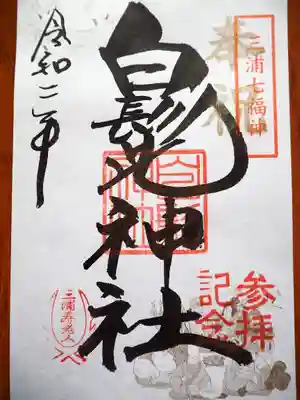 三浦七福神
奉拝
白髭神社
令和二年
参拝
記念
三浦寿老人